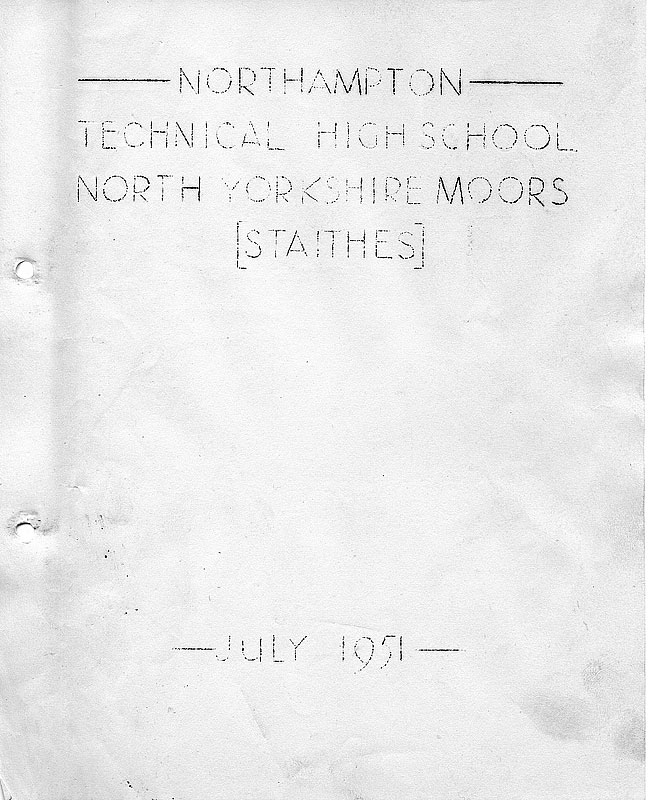 NORTHAMPTON
TECHNICAL HIGH SCHOOL.
NORTH YORKSHIRE MOORS
[STAITHES]
JULY 1951